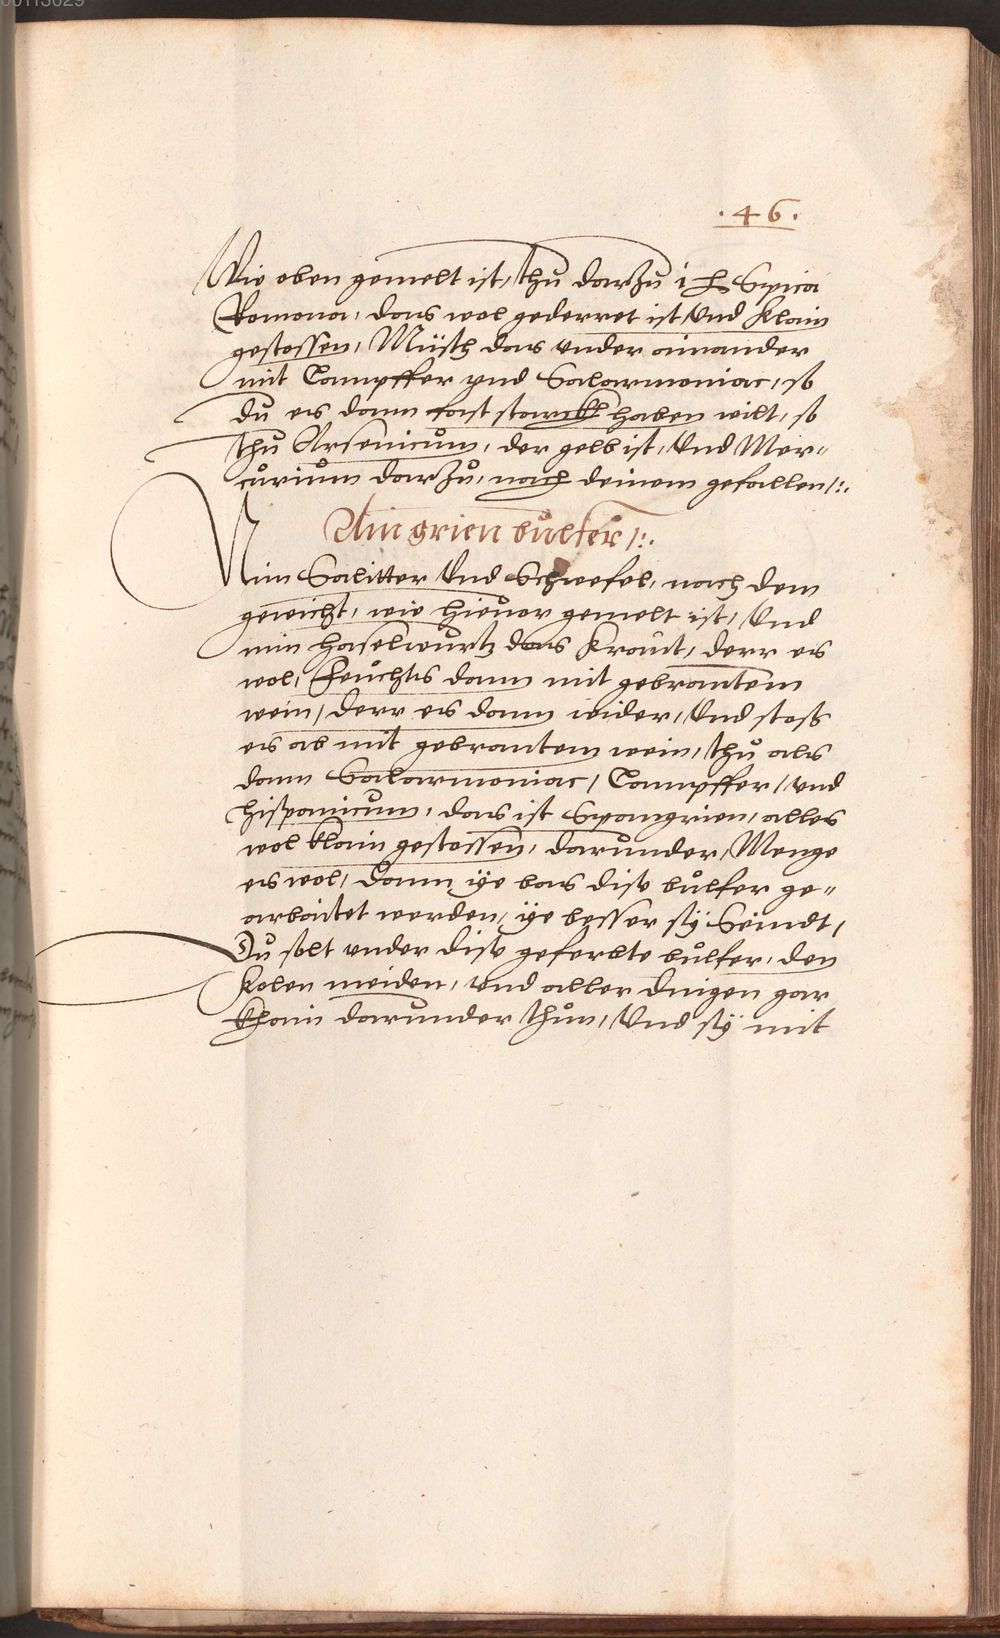 00113029
. 46 .
Wie oben gemelt ist, thů darzů i ℔ Spica
Romana, das wol gederret ist Vnd klain
gestossen, Müsch das vnder ainander
mit Campffer vnd Salarmoniac, so
du es dann fast starckh haben wilt, so
thů Arsenicum, der gelb ist, Vnd Mer-
curium darzů, nach deinem gefallen /:.
Ain grien bulfer /:.
Nim Salitter Vnd Schwefel, nach dem
gewicht, wie hieuor gemelt ist, Vnd
nim haselwurtz das kraut, derr es
wol, feuchts dann mit gebrantem
wein, derr es dann wider, Vnd stoss
es ab mit gebrantem wein, thů als
dann Salarmoniac, Campffer, vnd
hispanicum, das ist Spangrien, alles
wol klain gestossen, darunder, Menge
es wol, dann ÿe bas dise bulfer ge-
arbaitet werden, ÿe besser sÿ Seindt,
Du solt vnder dise geferbte bulfer, den
kolen meiden, vnd aller dingen gar
khain darunder thun, Vnd sÿ mit